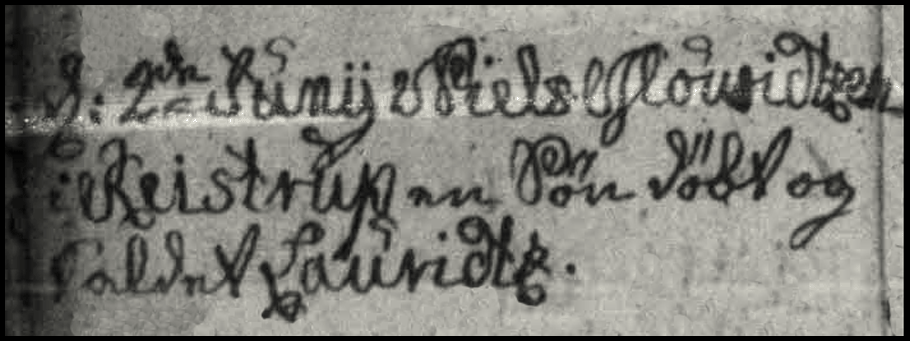 d. 2den Junij Niels Mouridtzen
i Keistrup en Sön döbt og
kaldet Lauridtz.